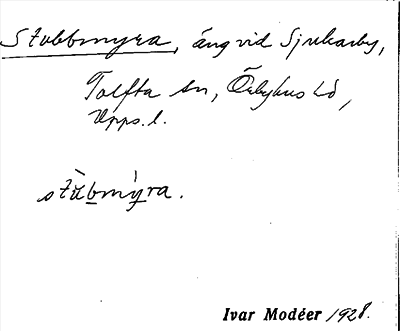 Stubbmyra, äng vid Sjukarby,
Tolfta sn, Örbyhus hd,
Upps. l.
stùbmỳ̠ra.
Ivar Modéer 1928.